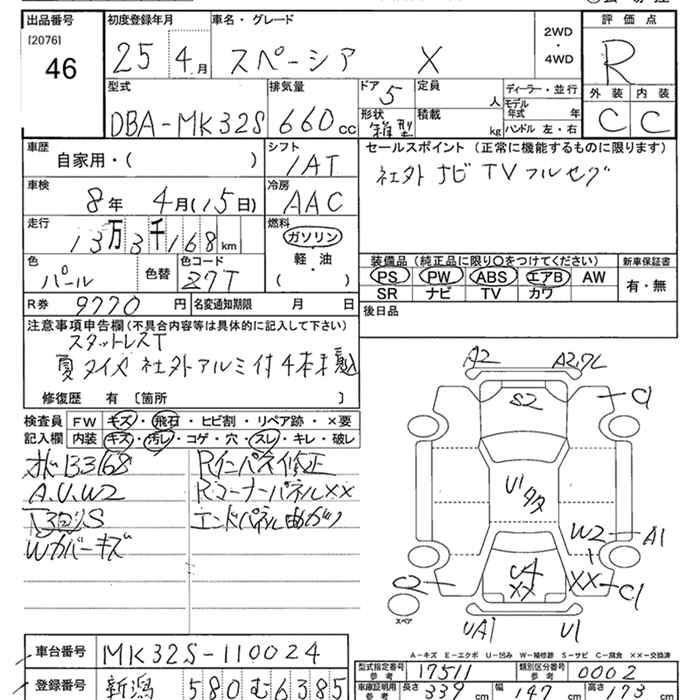 出品番号 初度登録年月 車名・グレード 2WD・4WD 評価点
[2076]
46
25 4月 スペーシア X R
型式 排気量 ドア 定員 ディーラー・並行 外装 内装
DBA-MK32S 660cc 5 人 モデル年式 年 C C
形状 箱型 積載 kg ハンドル 左・右
車歴 シフト セールスポイント (正常に機能するものに限ります)
自家用・( ) IAT 社外 ナビ TV フルセグ
車検 冷房
8年 4月(15日) AAC
走行 燃料
13万3千168km ガソリン 軽・油 ( )
装備品 (純正品に限り〇をつけてください) 新車保証書
PS PW ABS エアB AW 有・無
SR ナビ TV カワ
色 色替 色コード
パール Z7T
R券 9770円 名変通知期限 月 日 後日品
注意事項申告欄(不具合内容等は具体的に記入して下さい)
スタットレスT
夏タイヤ 社外アルミ付 4本
修復歴 有 〔箇所 〕
検査員記入欄 FW キズ・飛石・ヒビ割・リペア跡・×要
内装 キズ・汚レ・コゲ・穴・スレ・キレ・破レ
A2 A2,フL
S2 C1
B3 Rインパネ修正
A.U.W2 Rコーナーパネル××
エンドパネル曲ガリ
Wカバーキズ
U1 タタ
W2 A1
C2 U4 ×× ×× C1
スペア
UA1 U1
A-キズ E-エクボ U-凹み W-補修跡 S-サビ C-腐食 ××-交換済
車台番号 MK32S-110024
型式指定番号 参考 17511 類別区分番号 参考 0002
登録番号 新潟 580 む 6385
車庫証明用 参考 長さ 339cm 幅 147cm 高さ cm